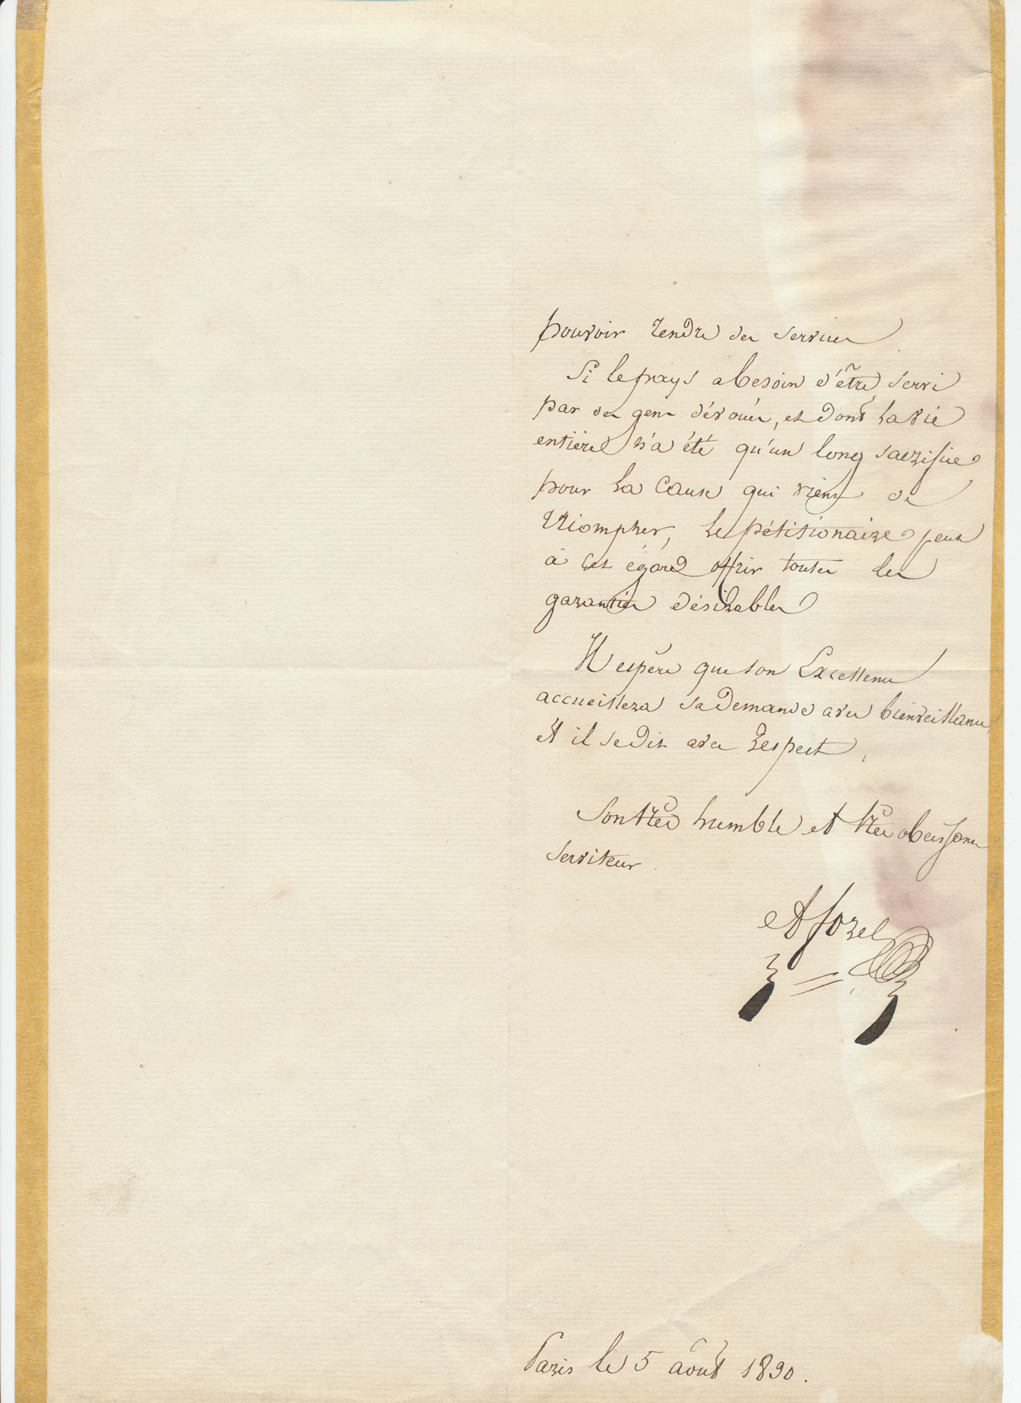 pouvoir rendre des services
Si le pays a besoin d'être servi
par des gens dévoués, et dont la vie
entière n'a été qu'un long sacrifice
pour la cause qui vient de
triompher, le pétitionaire peut
à cet égard offrir toutes les
garanties désirables
Il espère que son Excellence
accueillera sa demande avec bienveillance
Et il se dit avec respect,
Son très humble et très obeissant
serviteur.
Paris le 5 août 1830.